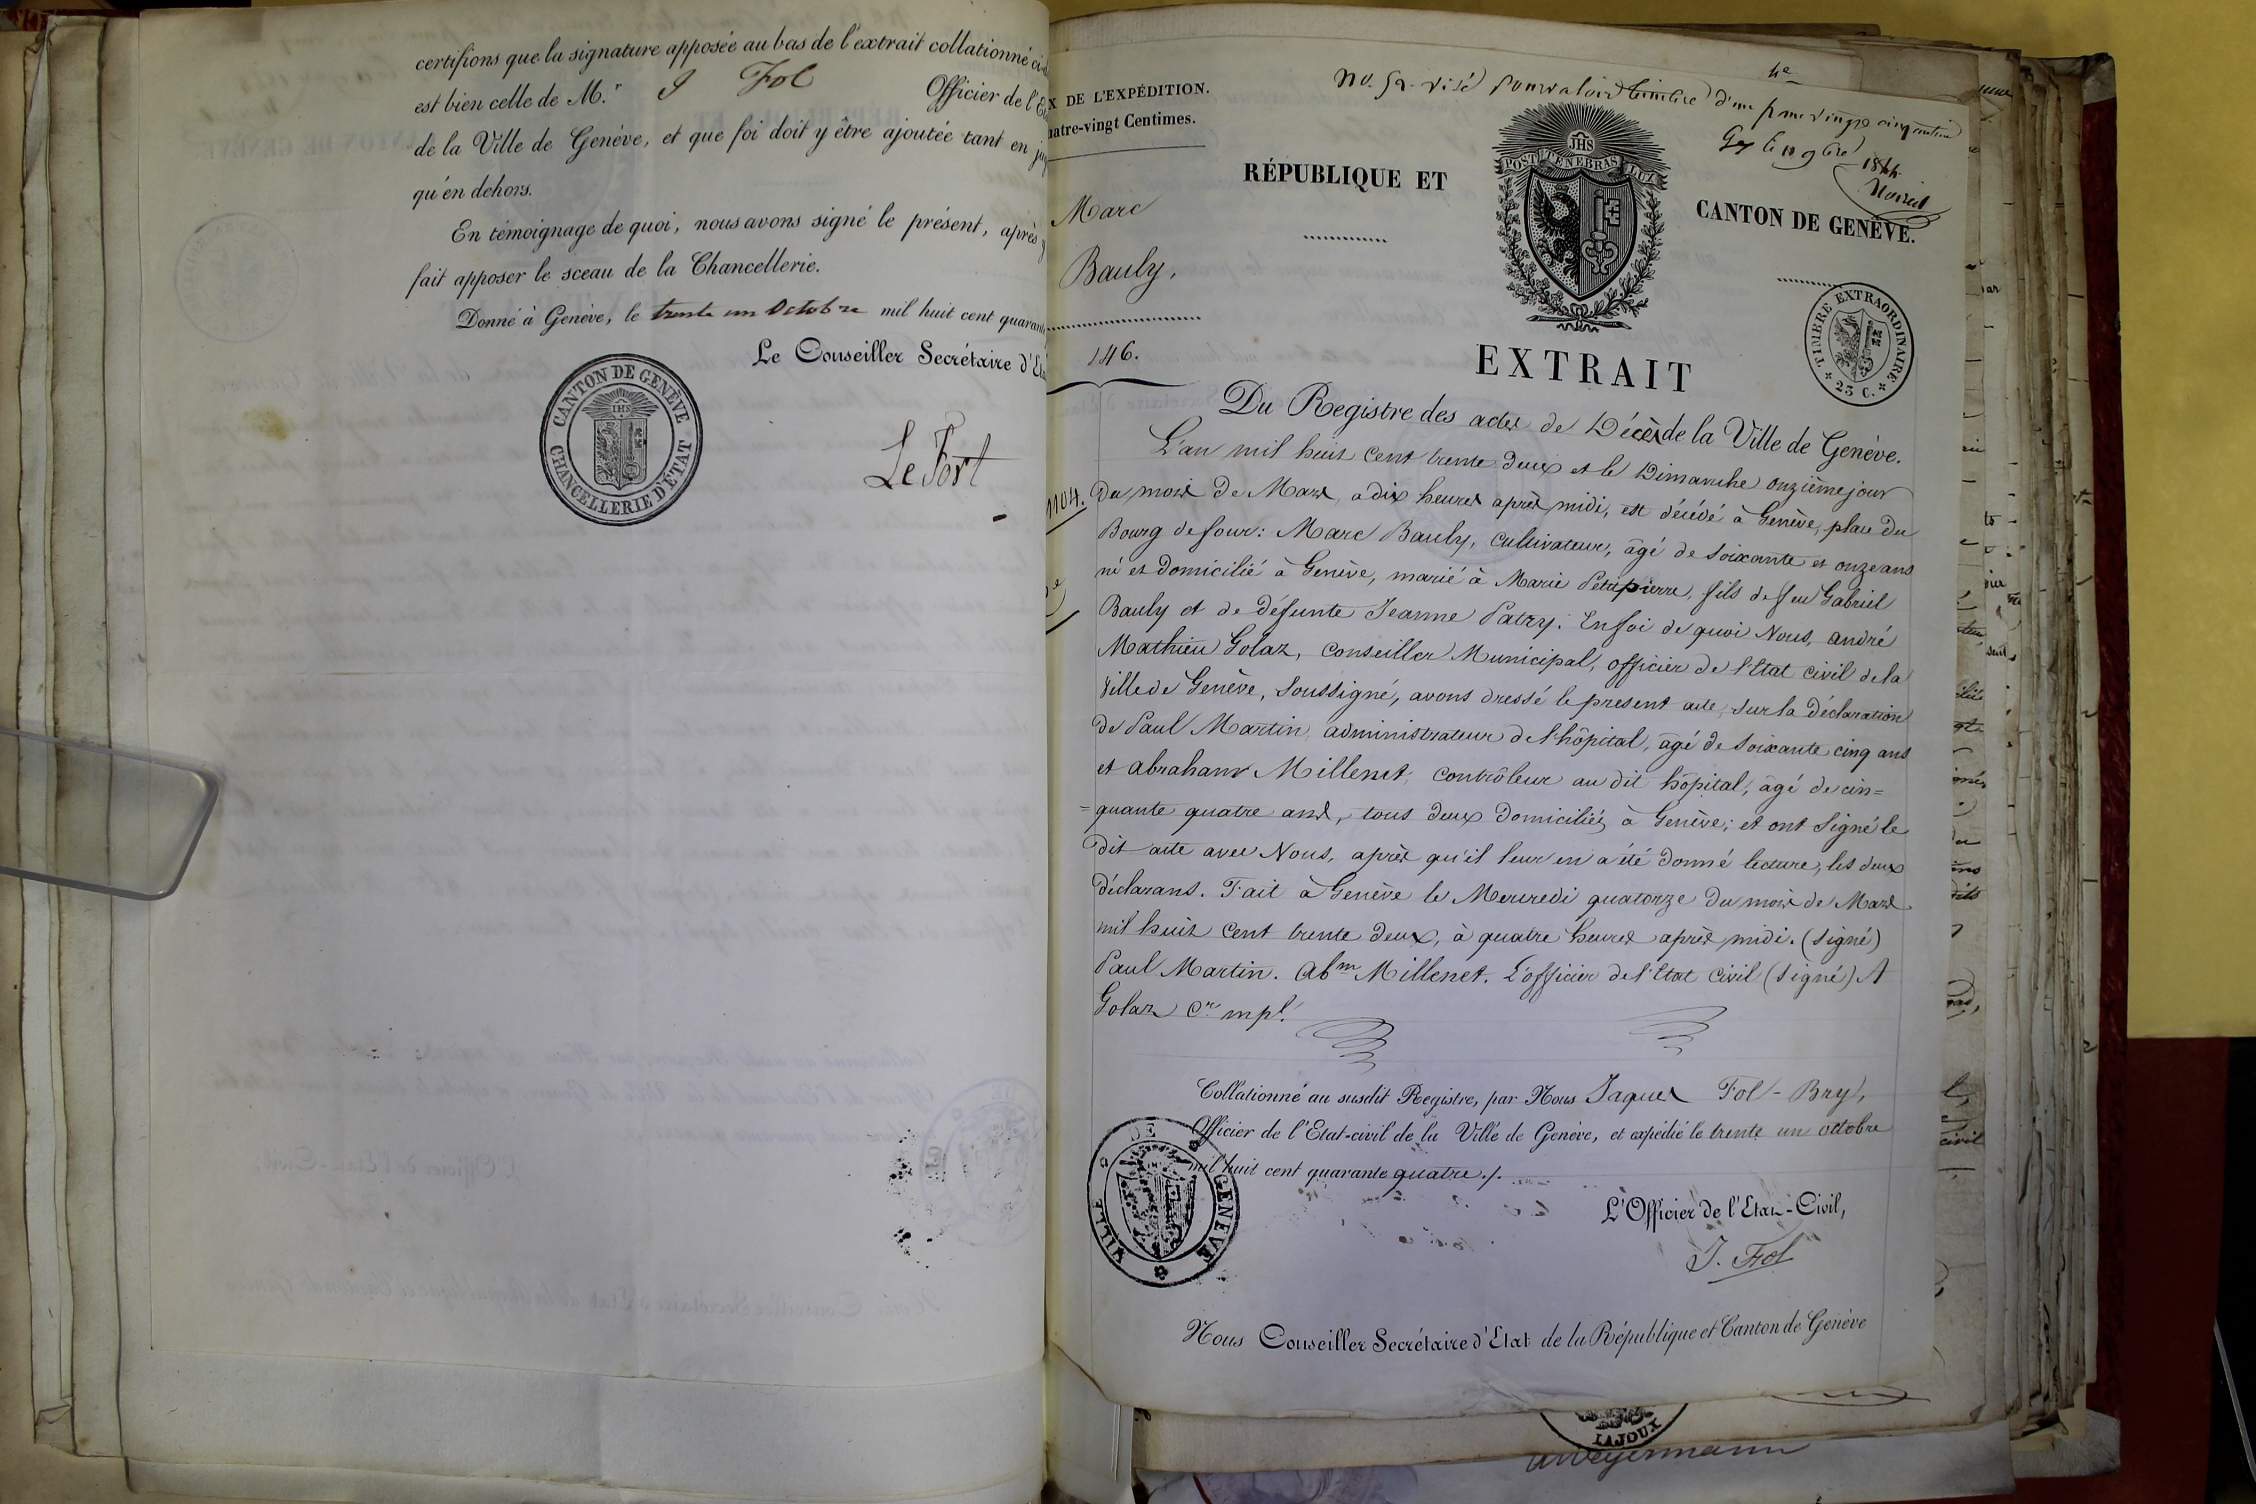 certifions que la signature apposée au bas de l'extrait collationné
est bien celle de M.r J Fol Officier de l'
de la Ville de Genève, et que foi doit y être ajoutée tant en
qu'en dehors.
En témoignage de quoi, nous avons signé le présent, après
fait apposer le sceau de la Chancellerie.
Donné à Genève, le trente un Octobre mil huit cent
Le Conseiller Secrétaire
CANTON DE GENÈVE
IHS
CHANCELLERIE D'ÉTAT
Le Fort
X DE L'EXPÉDITION.
atre-vingt Centimes.
No. visé pour valoir timbre d'une
1844
Marc
Bauly,
146.
RÉPUBLIQUE ET
JHS
POST TENEBRAS LUX
CANTON DE GENÈVE.
TIMBRE EXTRAORDINAIRE
25 C.
EXTRAIT
Du Registre des actes de Décès de la Ville de Genève.
L'an mil huit cent trente deux et le Dimanche onzième jour
1104.
Du mois de Mars, a dix heures après midi, est décédé à Genève, place du
Bourg de four: Marc Bauly, cultivateur, âgé de soixante et onze ans
né et domicilié à Genève, marié à Marie Petitpierre, fils de feu Gabriel
Bauly et de défunte Jeanne Patry. En foi de quoi Nous, andré
Mathieu Golaz, conseiller Municipal, officier de l'Etat civil de la
Ville de Genève, soussigné, avons dressé le présent acte, sur la déclaration
de Paul Martin, administrateur de l'hôpital, âgé de soixante cinq ans
et abraham Millenet, contrôleur au dit hôpital, âgé de cin=
=quante quatre ans, tous deux domiciliés à Genève; et ont signé le
dit acte avec Nous, après qu'il leur en a été donné lecture, les deux
déclarans. Fait à Genève le Mercredi quatorze du mois de Mars
mil huit cent trente deux, à quatre heures après midi. (signé)
Paul Martin. Abm Millenet. L'officier de l'Etat civil (signé) A
Golaz Cr mpl.
Collationné au susdit Registre, par Nous Jaques Fol-Bry,
Officier de l'Etat-civil de la Ville de Genève, et expédié le trente un octobre
mil huit cent quarante quatre./.
VILLE DE GENEVE
L'Officier de l'Etat-Civil,
J. Fol
Nous Conseiller Secrétaire d'Etat de la République et Canton de Genève
LAJOUX